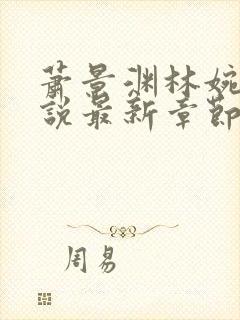 蕭景渊林婉
說最新章節
周易